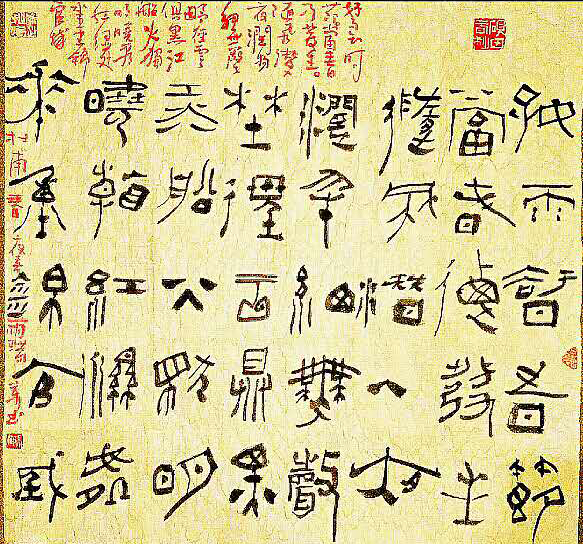 好雨知時節
當春乃發生
隨風潛入夜
潤物細無聲
野徑雲俱黑
江船火獨明
曉看紅濕處
花重錦官城
好雨知時
節當春
乃發生
隨風潛入
夜潤物
細無聲
野徑雲
俱黑江
船火獨
明曉看
紅濕處
花重錦
官城
杜甫春夜喜雨